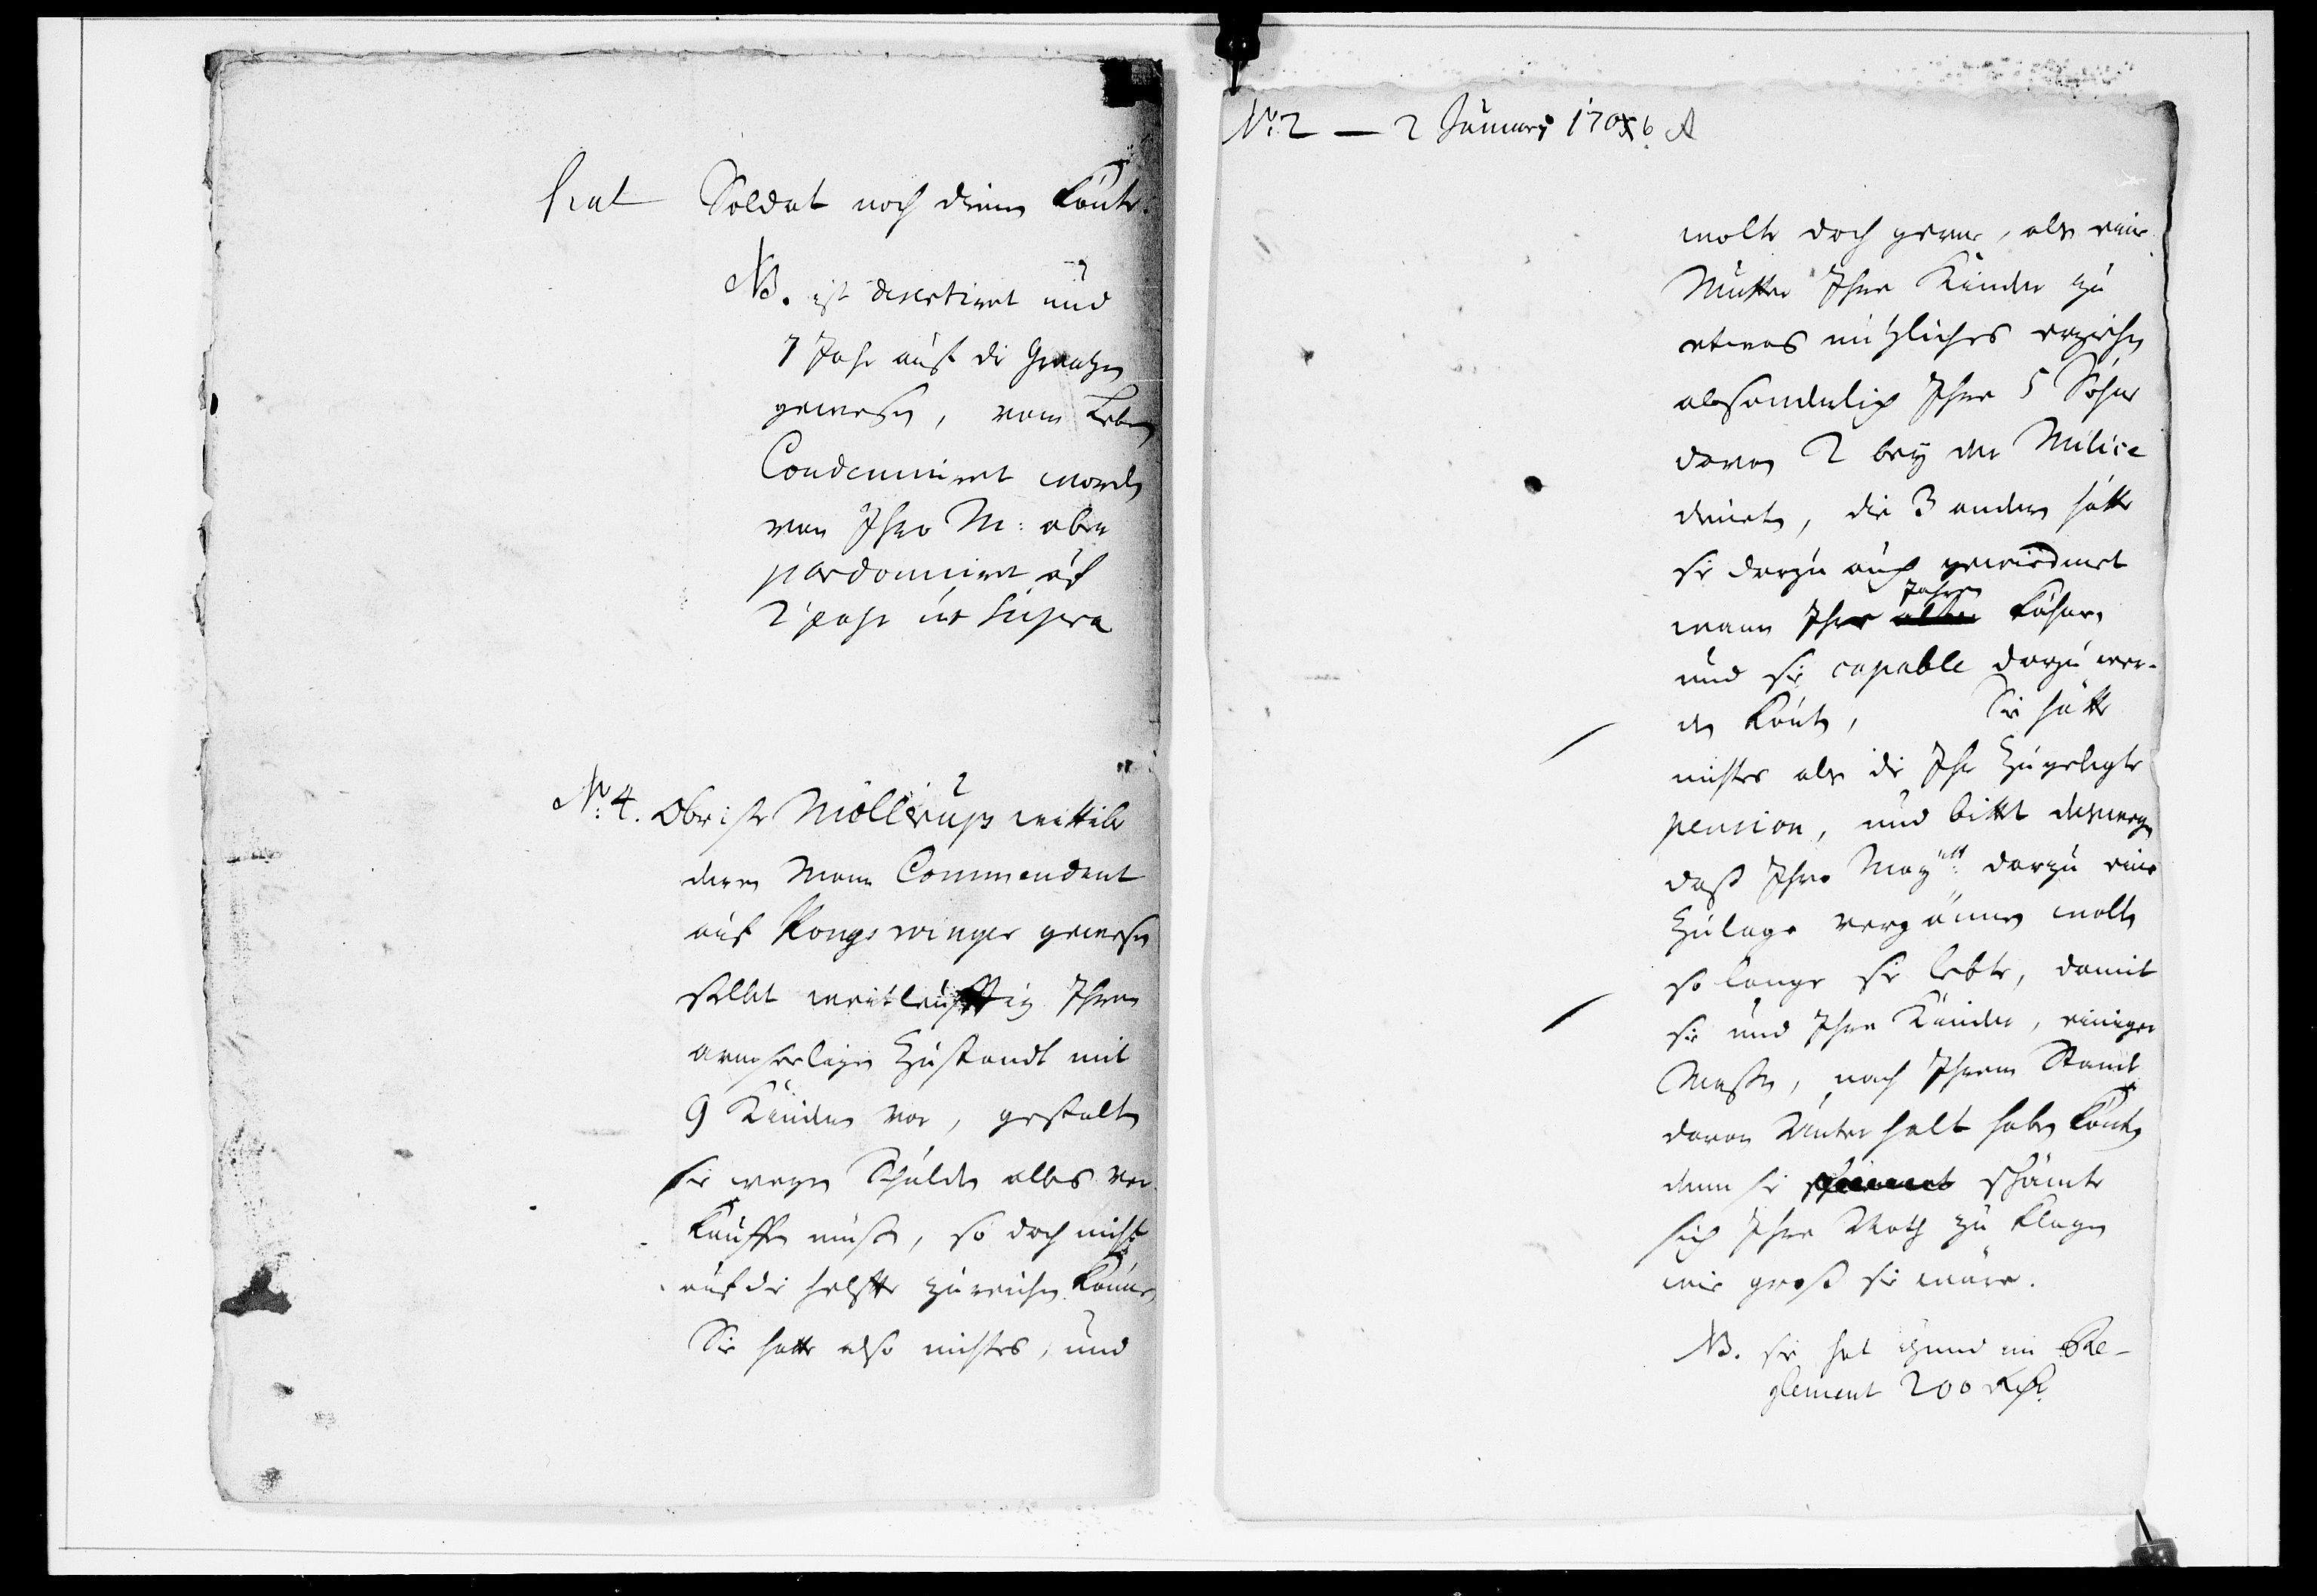 Soldat noch dienen könte.
NB. ist desertiret und
7 Jahr auf die Grentzen
gewesen, vom Leben
Condemniret worden
von Ihro M: aber
pardonniret auf
2 Jahr ut supra
No: 4. Obriste Möllerups wittib
deren Mann Commendant
auf Kongswinger gewesen
stellet weitleufftig Ihren
armseeligen Zustandt mit
9 Kindern vor, gestalten
sie wegen Schulden alles ver-
kauffen müsse, so doch nicht
auf die helffte zureichen könne,
Sie hatte also nichtes, und
No: 2 — 2 Januarij 1706. A
wolte doch gerne, als eine
Mutter Ihre Kinder zu
etwas nützliches erziehen
absonderlich Ihre 5 Söhne
davon 2 bey der Milice
dienten, die 3 andern hätte
sie darzu auch gewiedmet
wann Ihre alter Jahren
und sie capable darzu wer-
den könten, Sie hätte
nichtes als die Ihr Zugelegte
pension, und bittet deswegen
daß Ihro Maytt: darzu eine
Zulage vergönnen wolten
so lange sie lebte, damit
sie und Ihre Kinder, einiger
Massen, nach Ihrem Stand
davon Unterhalt haben könten
denn sie schämte
sich Ihre Noth zu klagen
wie groß sie wäre.
NB. sie hat itzund im Re-
glement 200 Rthl.